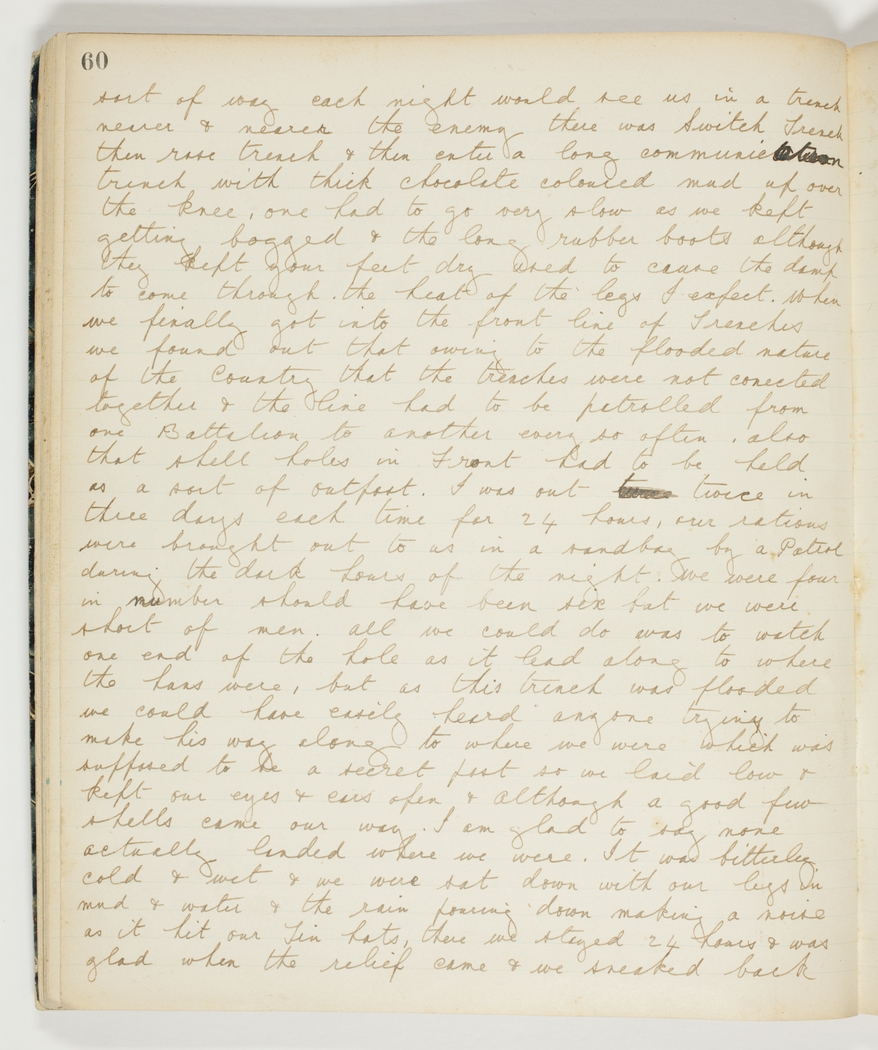 60
sort of way each night would see us in a trench
nearer & nearer the enemy there was Switch Trench
then rose trench & then enter a long communication
trench with thick chocolate coloured mud up over
the knee, one had to go very slow as we kept
getting bogged & the long rubber boots although
they kept your feet dry used to cause the damp
to come through. the heat of the legs I expect. When
we finally got into the front line of Trenches
we found out that owing to the flooded nature
of the Country that the trenches were not conected
together & the line had to be patrolled from
one Battalion to another every so often. also
that shell holes in Front had to be held
as a sort of outpost. I was out twice in
three days each time for 24 hours, our rations
were brought out to us in a sandbag by a Patrol
during the dark hours of the night. We were four
in number should have been six but we were
short of men. all we could do was to watch
one end of the hole as it lead along to where
the huns were, but as this trench was flooded
we could have easily heard anyone trying to
make his way along to where we were which was
supposed to be a secret post so we laid low &
kept our eyes & ears open & although a good few
shells came our way. I am glad to say none
actually landed where we were. It was bitterley
cold & wet & we were sat down with our legs in
mud & water & the rain pouring down making a noise
as it hit our Tin hats, there we stayed 24 hours & was
glad when the relief came & we sneaked back